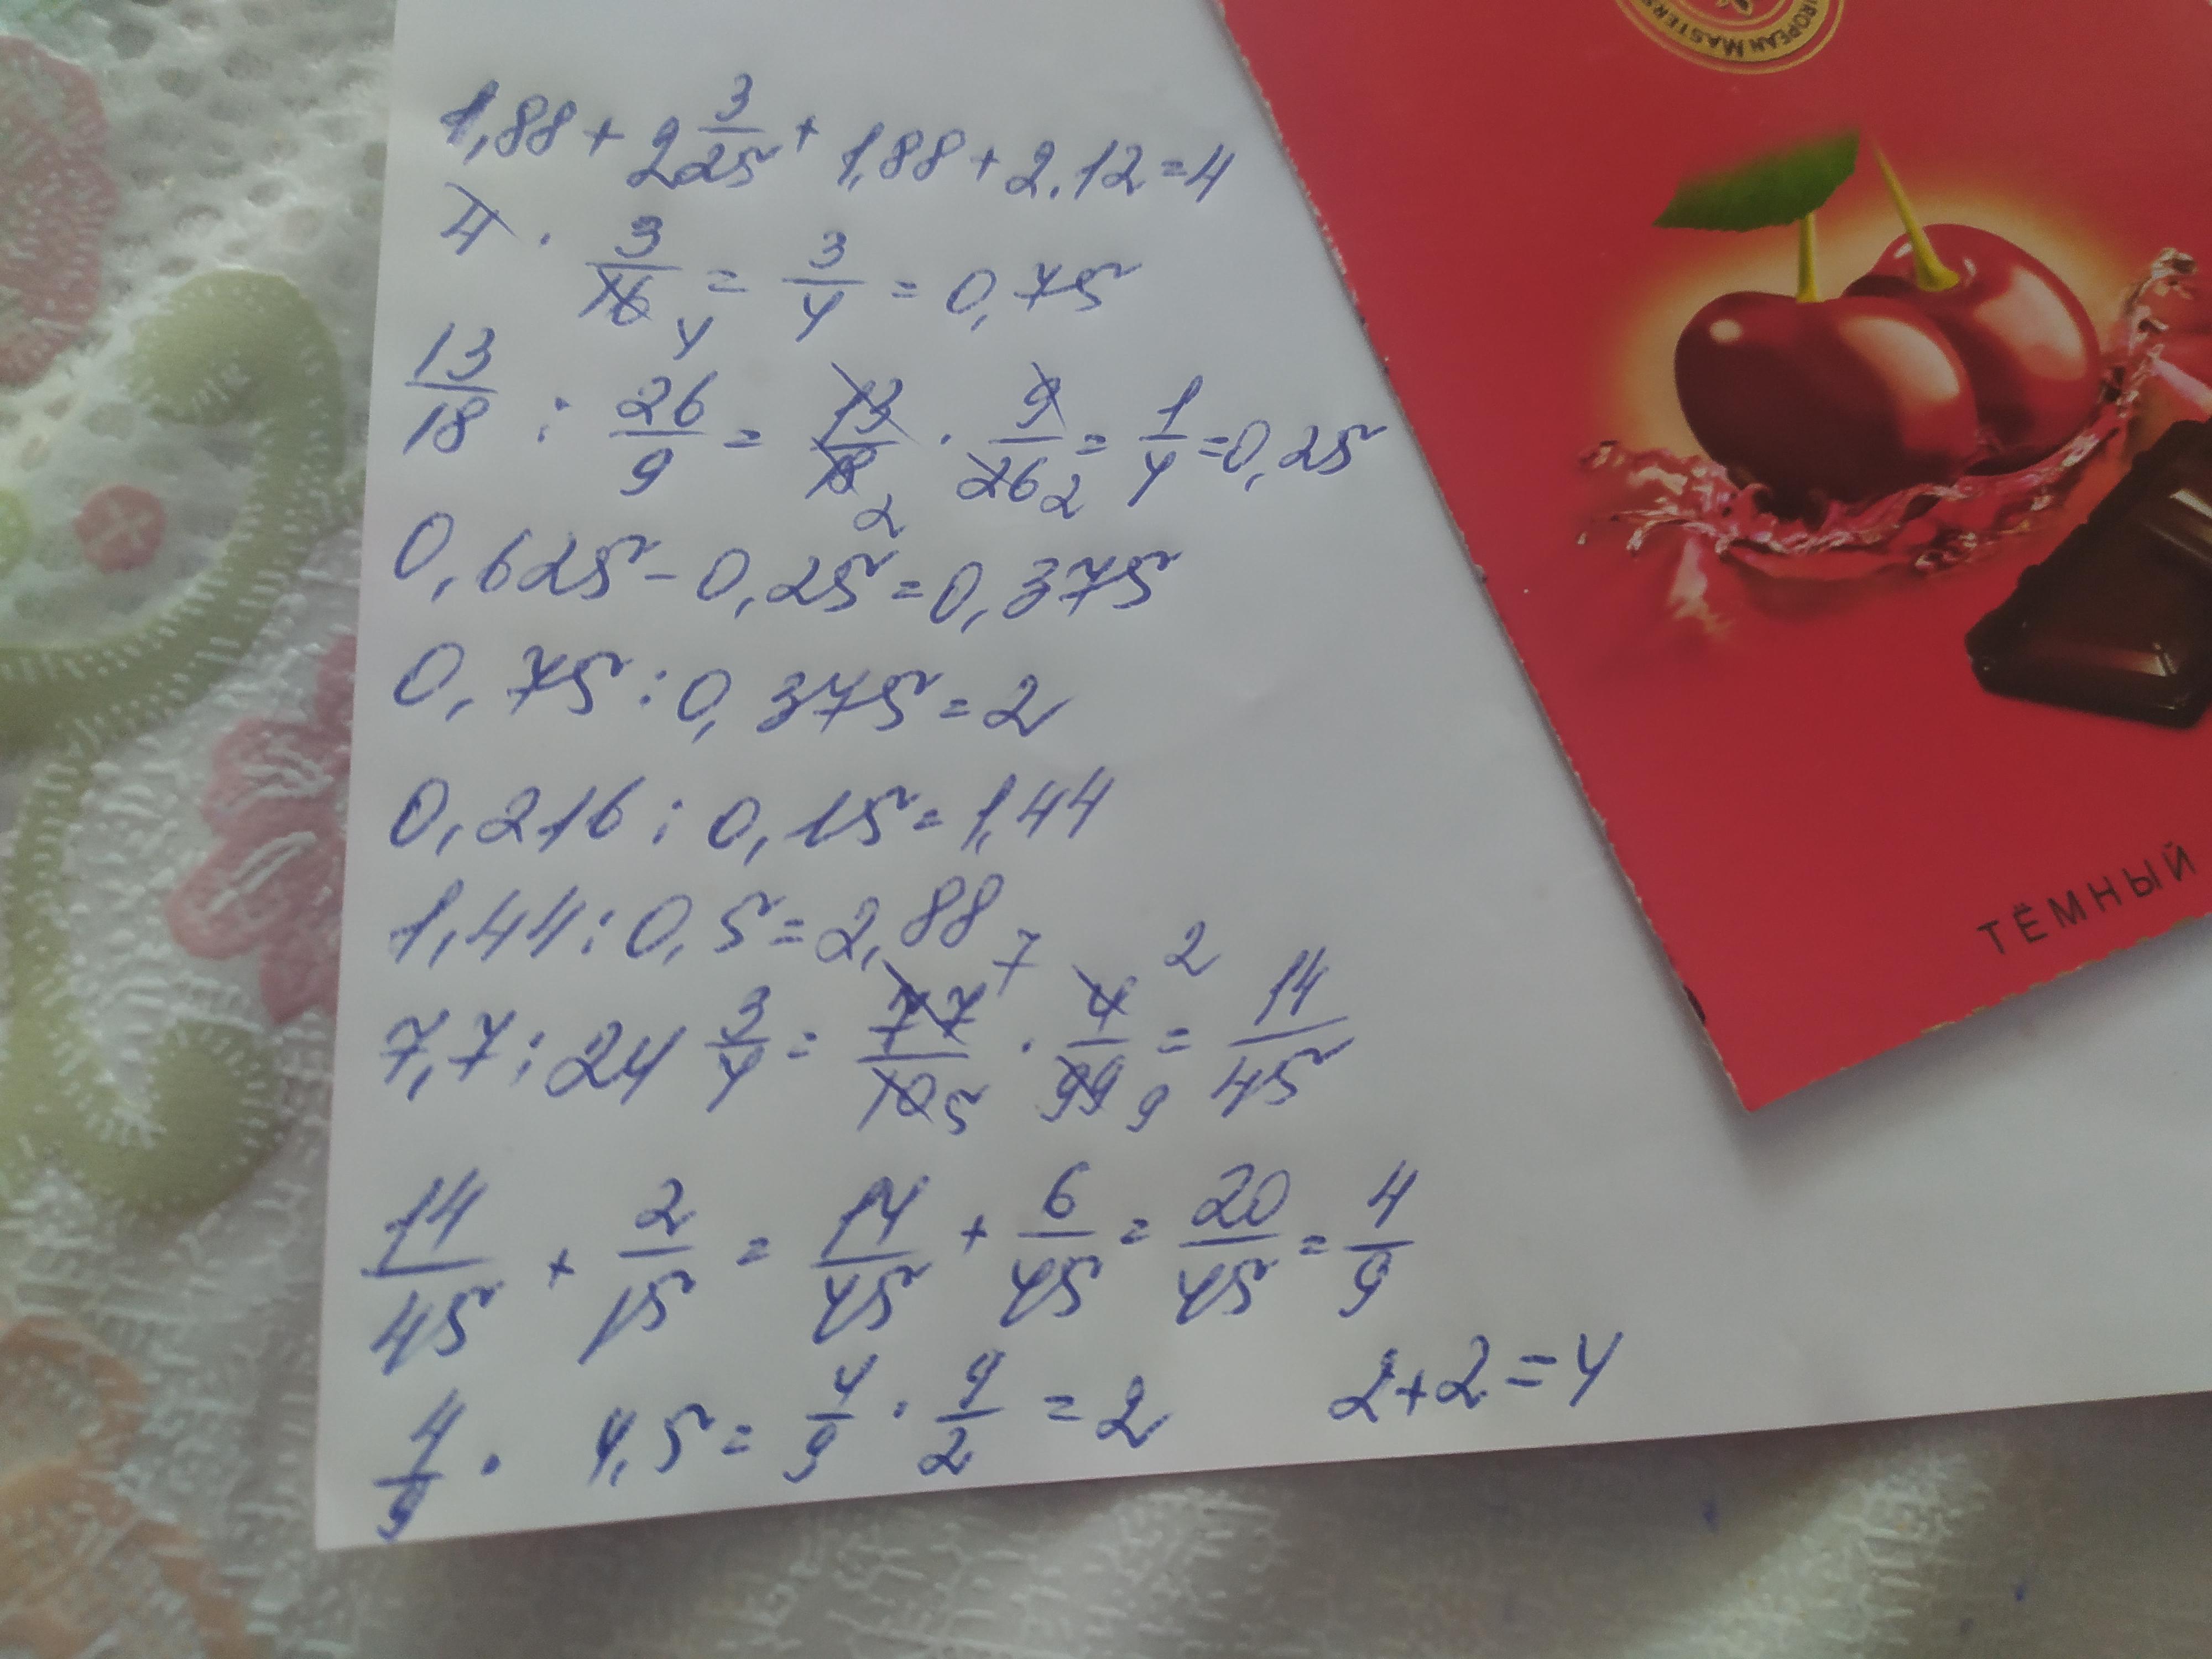 1,88 + 2 3/25 + 1,88 + 2.12 = 4
4 · 3/16 4 = 3/4 = 0,75
13/18 : 26/9 = 13/18 2 · 9/26 2 = 1/4 = 0,25
0,625 - 0,25 = 0,375
0,75 : 0,375 = 2
0,216 : 0,15 = 1,44
1,44 : 0,5 = 2,88
7,7 : 24 3/4 = 77 7/10 5 · 4 2/99 9 = 14/45
14/45 + 2/15 = 14/45 + 6/45 = 20/45 = 4/9
4/9 · 4,5 = 4/9 · 9/2 = 2 2+2=4
EUROPEAN MASTERS
ТЁМНЫЙ